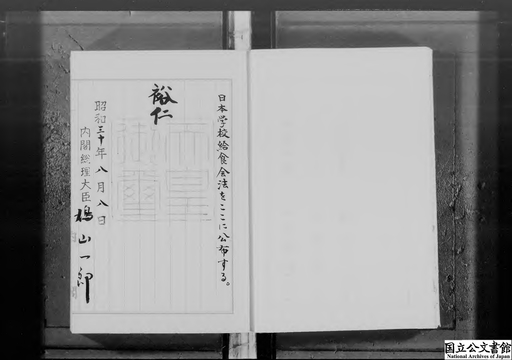 日本学校給食会法をここに公布する。
裕仁
天皇御璽
昭和三十年八月八日
内閣総理大臣 鳩山一郎
国立公文書館
National Archives of Japan